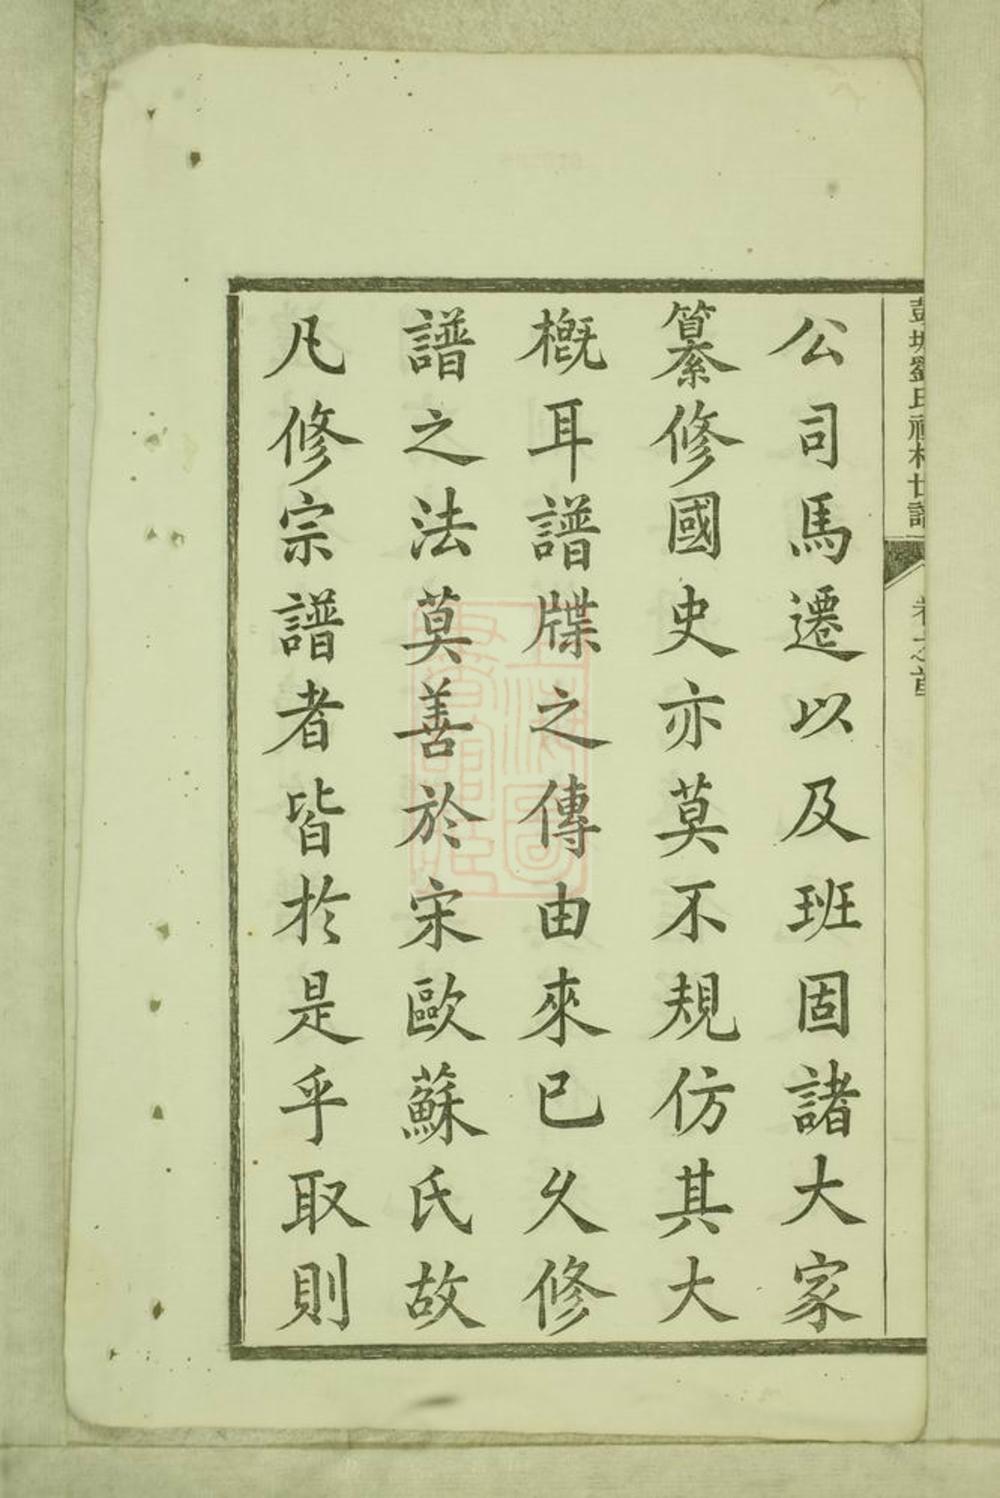 彭城劉氏
卷之首
公司馬遷以及班固諸大家
纂修國史亦莫不規仿其大
概耳譜牒之傳由來已久修
譜之法莫善於宋歐蘇氏故
凡修宗譜者皆於是乎取則